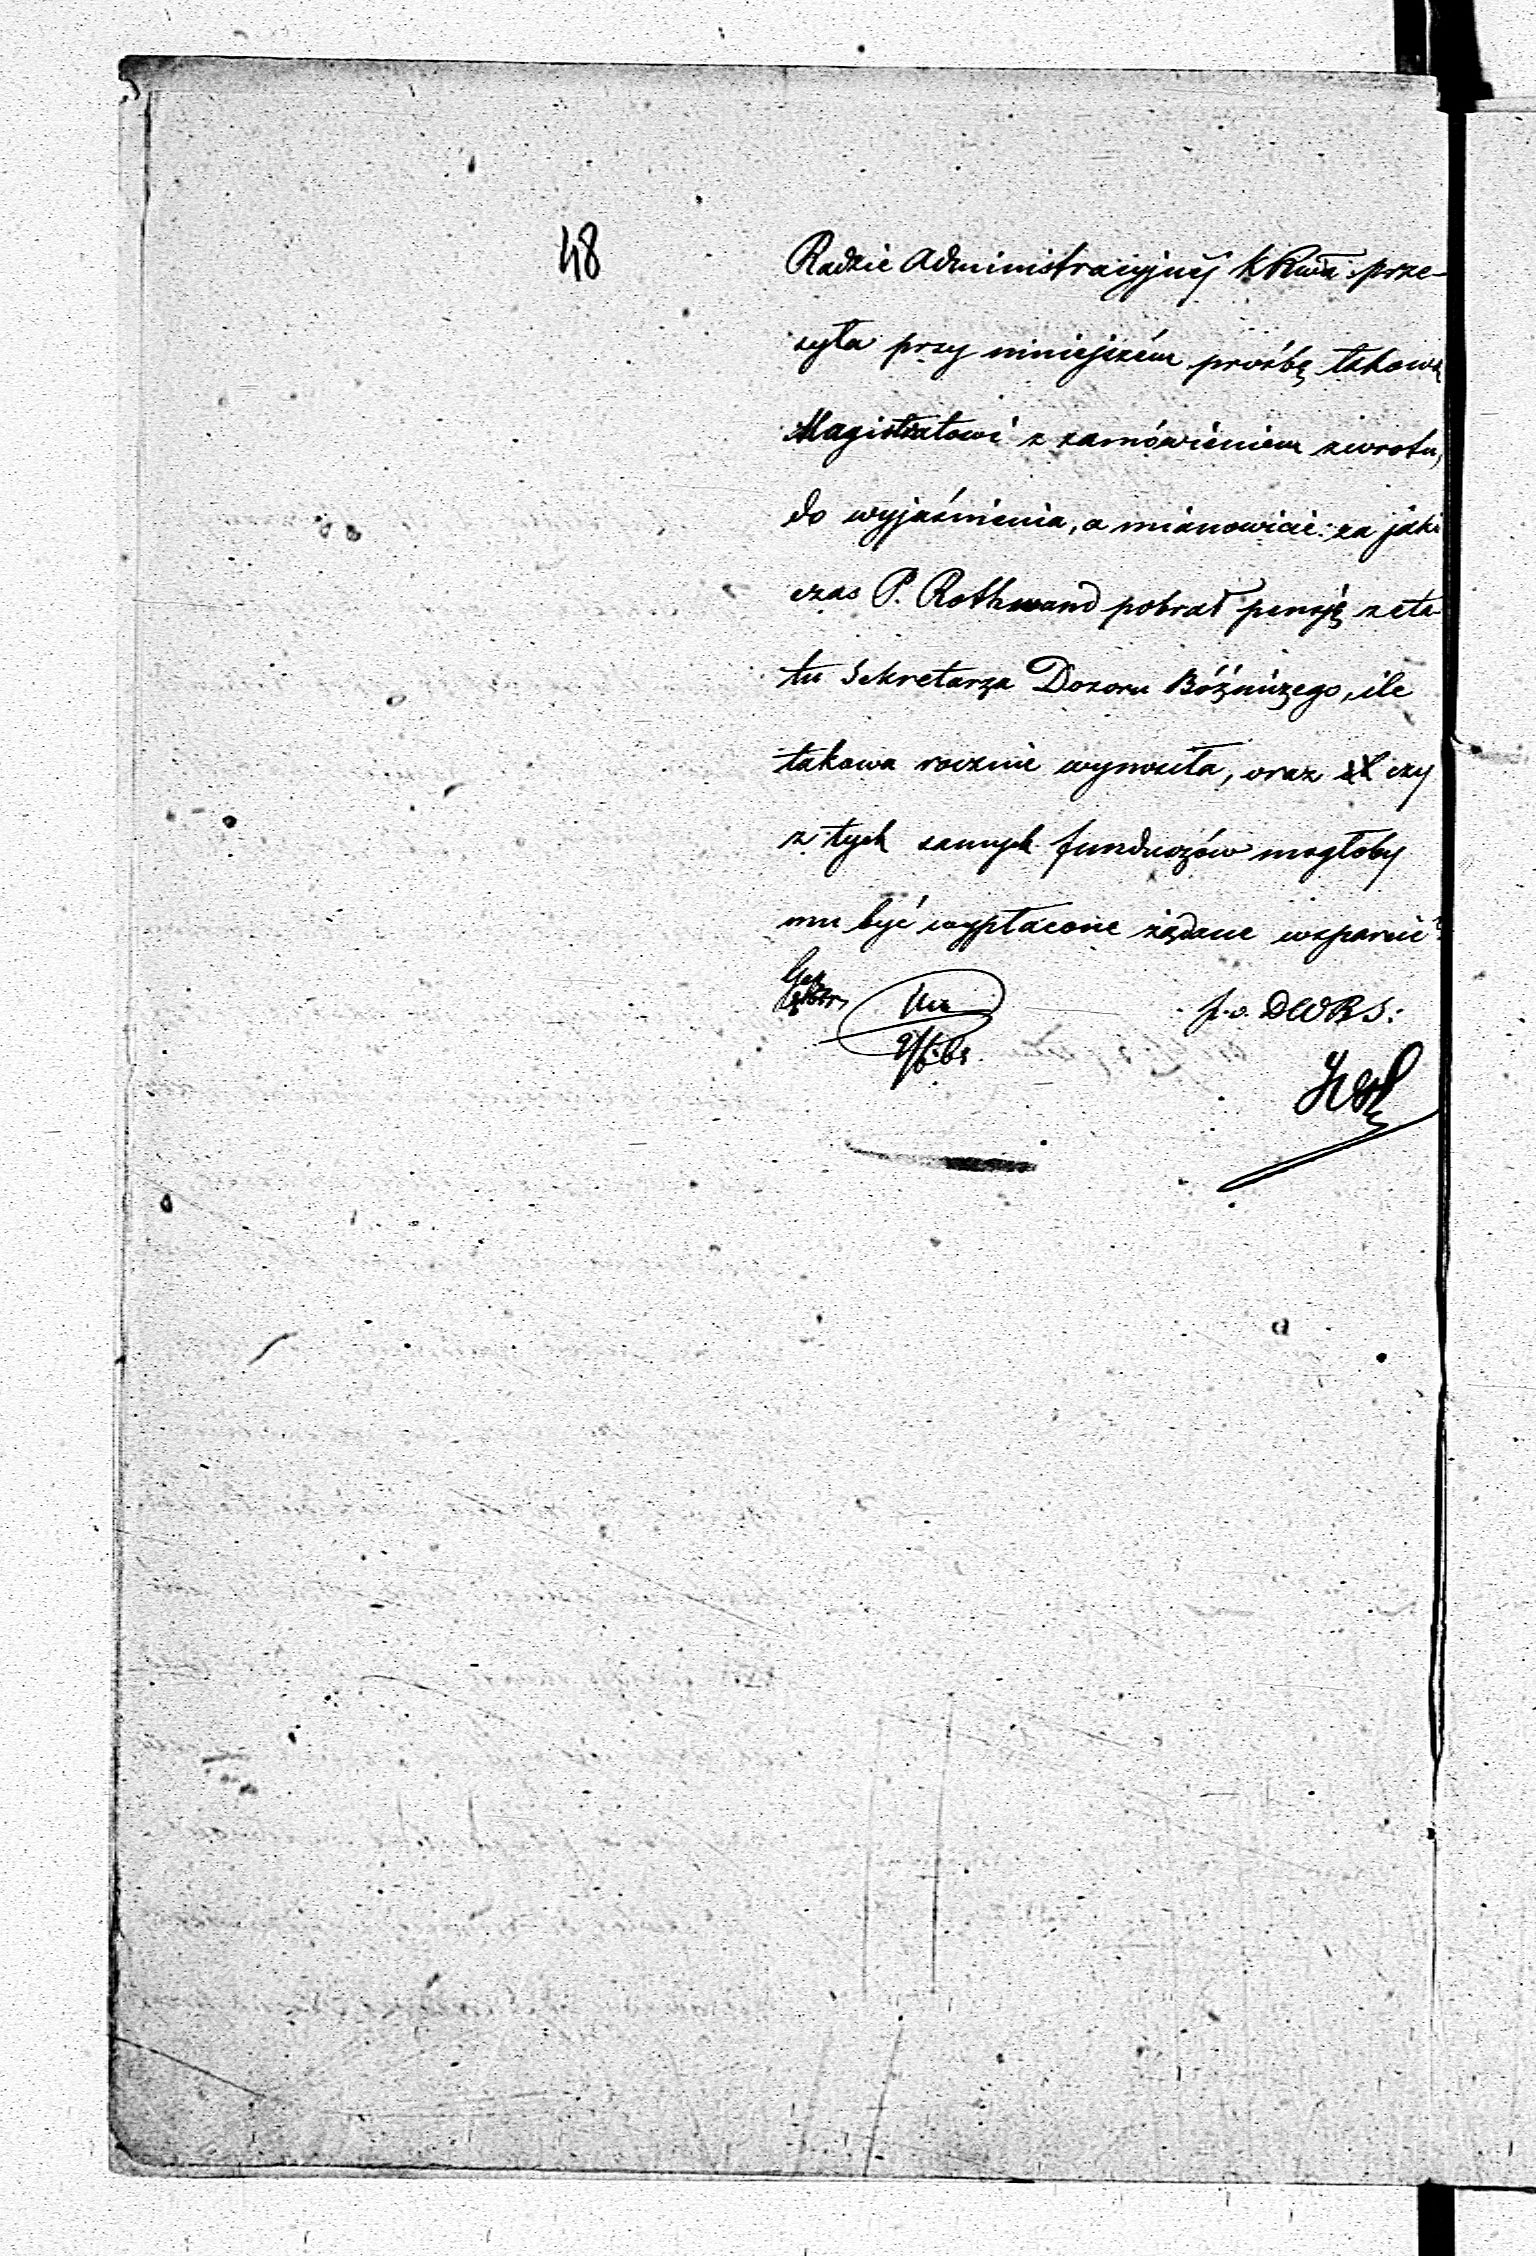 48
Radzie Administracyjnéj k Rwa: prze-
syła przy niniejszém prośbę takową
Magistratowi z zamówieniem zwrotu,
do wyjaśnienia, a mianowicie: za jaki
czas P. Rothwand pobrał pensję z eta-
tu Sekretarza Dozoru Bóźniczego, ile
takowa rocznie wynosiła, oraz czy
z tych samych funduszów mogłoby
mu być wypłacone żądane wsparcie?
p. o. DWRS: